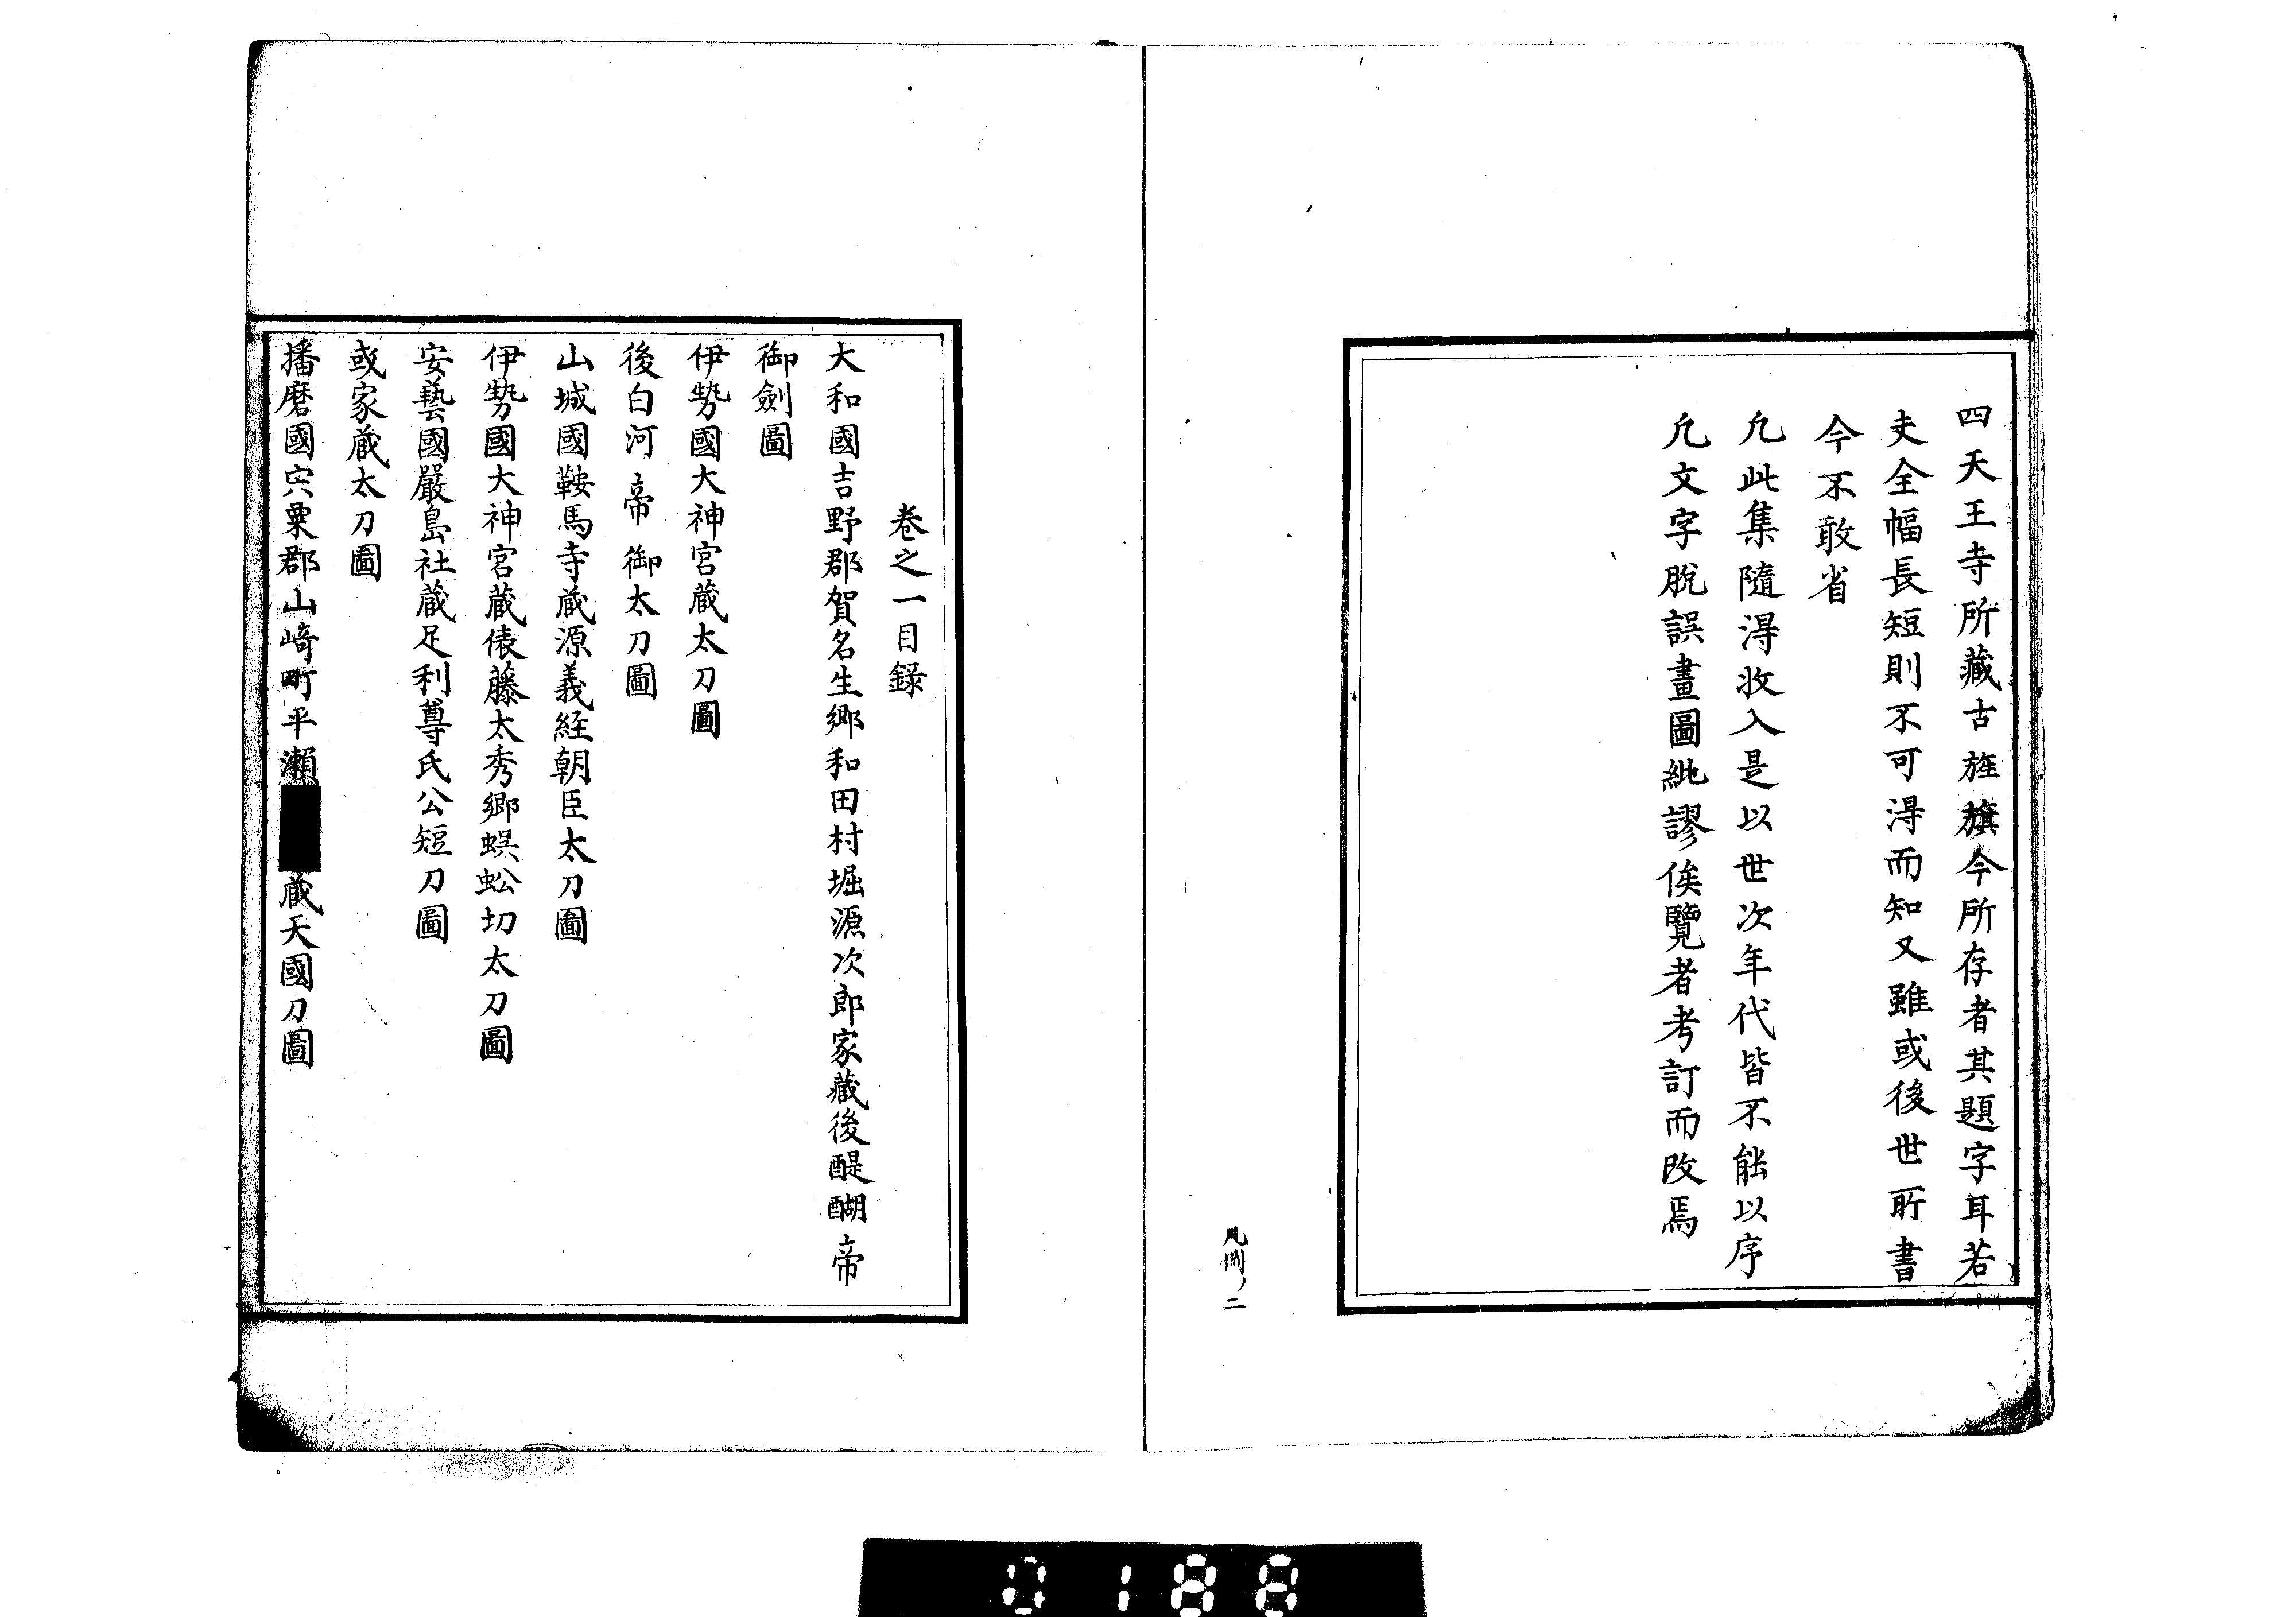 四天王寺所藏古旌旗今所存者其題字耳若
夫全幅長短則不可得而知又雖或後世所書
今不敢省
凡此集隨得收入是以世次年代皆不能以序
凡文字脫誤畫圖紕謬俟覽者考訂而改焉
凡例ノ二
卷之一目錄
大和國吉野郡賀名生鄉和田村堀源次郎家藏後醍醐帝
御劍圖
伊勢國大神宮蔵太刀圖
後白河帝御太刀圖
山城國鞍馬寺蔵源義経朝臣太刀圖
伊勢國大神宮蔵俵藤太秀鄉蜈蚣切太刀圖
安藝國嚴島社蔵足利尊氏公短刀圖
或家蔵太刀圖
播磨國宍粟郡山崎町平瀬蔵天國刀圖
0188